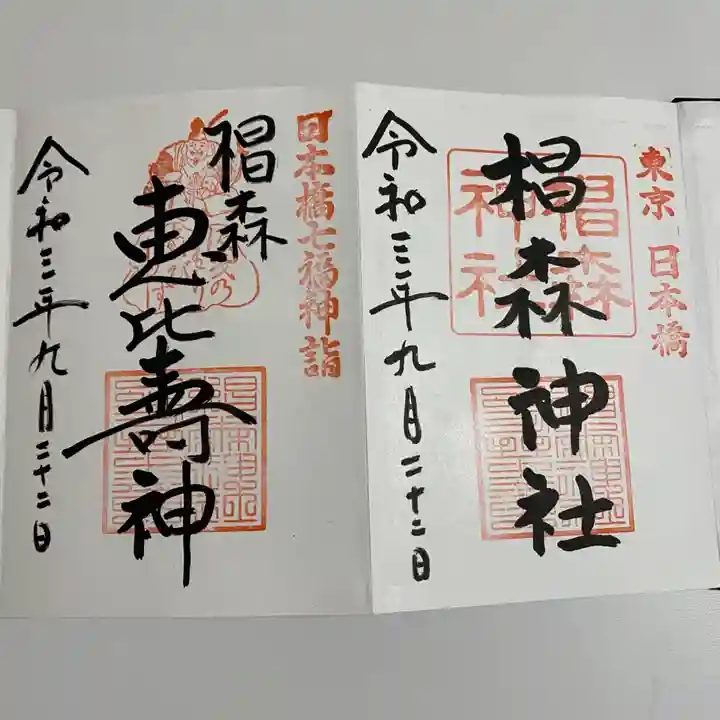 東京 日本橋
椙森神社
椙森
神社
令和三年九月二十二日
日本橋七福神詣
椙森
恵比壽神
令和三年九月二十二日